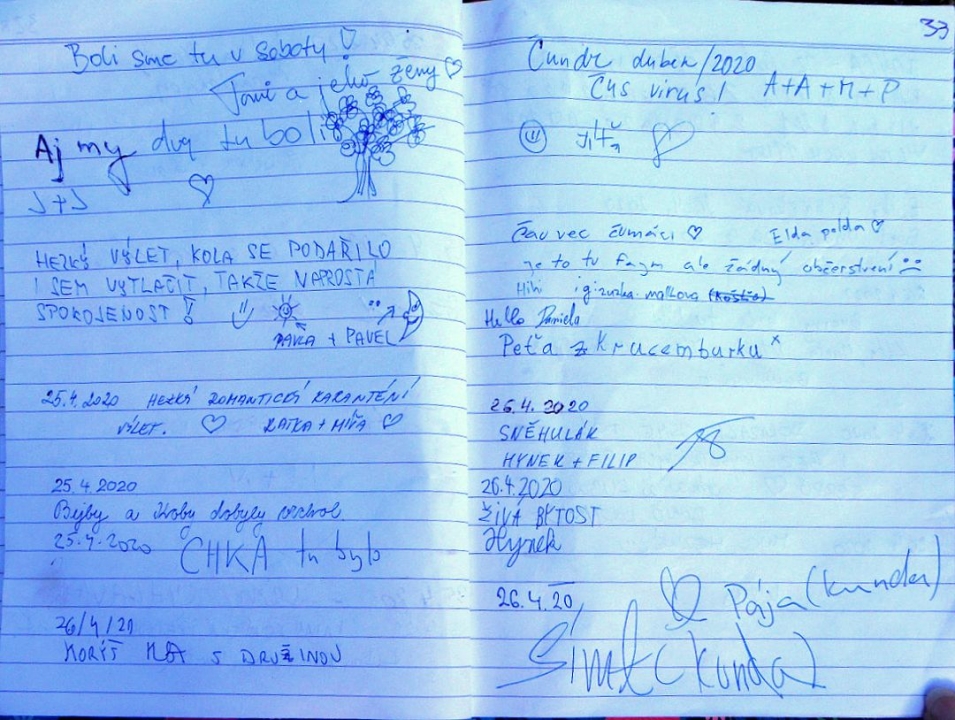 Boli sme tu v Soboty
Tomi a jeho ženy
Aj my dvq tu boli
J+J
HEZKÝ VÝLET, KOLA SE PODAŘILO
I SEM VYTLAČIT, TAKŽE NAPROSTÁ
SPOKOJENOST!
PAVLA + PAVEL
25.4.2020 HEZKÁ ROMANTICKÁ KARANTÉNÍ
VÝLET. KATKA + MÍŠA
25.4.2020
Bejby a dobyly vrchol.
25.4.2020 CHKA tu bylo
26/4/20
MORIŠ S DRUŽINOU
33
Čundr duben/2020
Čus virus! A+A+M+P
Čau vec čumáci Elda polda
je to tu fajn ale žádný občerstvení
Hihi
Hello Daniela
Peťa z Krucemburku x
26.4.2020
SNĚHULÁK
HYNEK + FILIP
26.4.2020
ŽIVÁ BYTOST
Hynek
26.4.20
Pája (kunda)
(kunda)